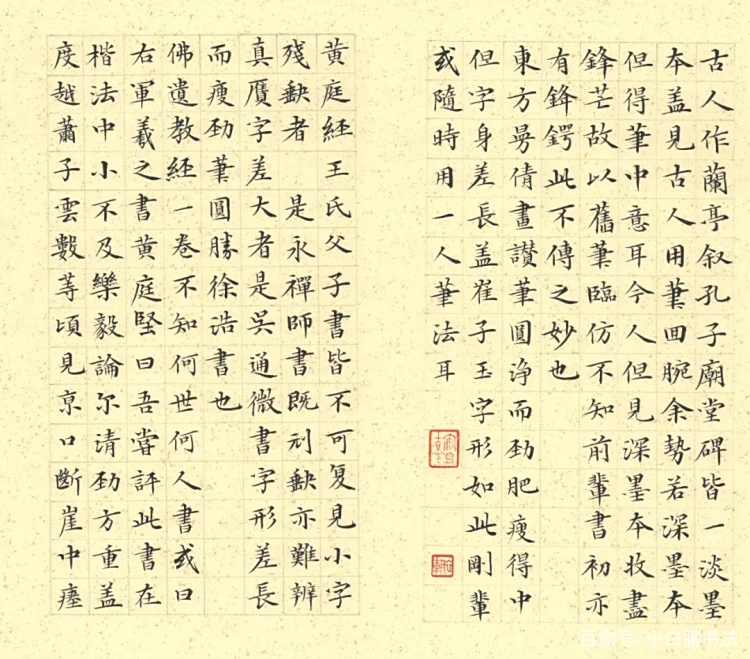 古人作蘭亭叙孔子廟堂碑皆一淡墨
本盖見古人用筆回腕余勢若深墨本
但得筆中意耳今人但見深墨本收盡
鋒芒故以舊筆臨仿不知前輩書初亦
有鋒鍔此不傳之妙也
東方曼倩畫讃筆圓浄而劲肥瘦得中
但字身差長盖崔子玉字形如此剛輩
或隨時用一人筆法耳
黄庭経王氏父子書皆不可复見小字
残缺者 是永禪師書既刓缺亦難辨
真贋字差大者是吴通微書字形差長
而瘦劲筆圓勝徐浩書也
佛遺教経一卷不知何世何人書或曰
右軍羲之書黄庭堅曰吾嘗評此書在
楷法中小不及樂毅論尔清劲方重盖
度越蕭子雲數等頃見京口斷崖中瘞
百家号/小白聊书法